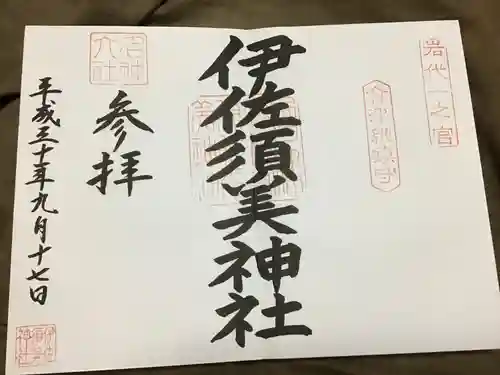 岩代一之宮
伊佐須美神社
参拝
平成三十年九月十七日